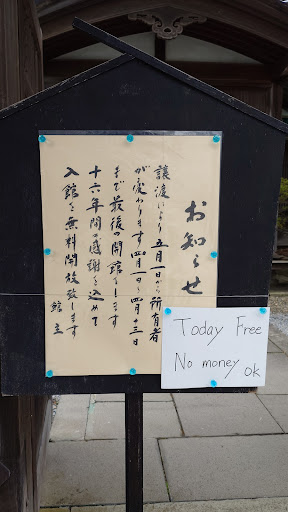 お知らせ
譲渡により五月一日から所有者
が変わります四月一日~四月十三日
まで最後の開館をします
十六年間の感謝を込めて
入館を無料開放致します
館主
Today Free
No money ok